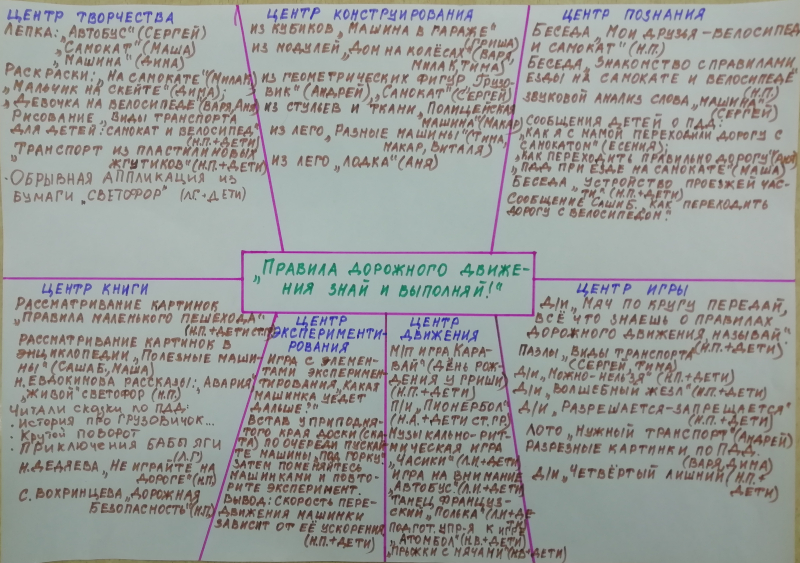 ЦЕНТР ТВОРЧЕСТВА
ЛЕПКА: „АВТОБУС" (СЕРГЕЙ)
„САМОКАТ" (МАША)
„МАШИНА" (ДИМА)
РАСКРАСКИ: „НА САМОКАТЕ" (МИЛАК)
„МАЛЬЧИК НА СКЕЙТЕ" (ДИМА);
„ДЕВОЧКА НА ВЕЛОСИПЕДЕ (ВАРЯ, АНЯ)
РИСОВАНИЕ „ВИДЫ ТРАНСПОРТА
ДЛЯ ДЕТЕЙ: САМОКАТ И ВЕЛОСИПЕД"
(Н.П.+ДЕТИ)
„ТРАНСПОРТ ИЗ ПЛАСТИЛИНОВЫХ
ЖГУТИКОВ" (Н.П.+ДЕТИ)
· ОБРЫВНАЯ АППЛИКАЦИЯ ИЗ
БУМАГИ „СВЕТОФОР" (Л.Г.+ДЕТИ)
ЦЕНТР КОНСТРУИРОВАНИЯ
ИЗ КУБИКОВ „МАШИНА В ГАРАЖЕ"
(ГРИША)
ИЗ МОДУЛЕЙ „ДОМ НА КОЛЁСАХ" (ВАРЯ,
МИЛАК, ТИМА)
ИЗ ГЕОМЕТРИЧЕСКИХ ФИГУР „ГРУЗО-
ВИК" (АНДРЕЙ) „САМОКАТ" (СЕРГЕЙ)
ИЗ СТУЛЬЕВ И ТКАНИ „ПОЛИЦЕЙСКАЯ
МАШИНА" (МАКАР)
ИЗ ЛЕГО „РАЗНЫЕ МАШИНЫ" (ТИМА,
МАКАР, ВИТАЛЯ)
ИЗ ЛЕГО „ЛОДКА" (АНЯ)
ЦЕНТР ПОЗНАНИЯ
БЕСЕДА „МОИ ДРУЗЬЯ – ВЕЛОСИПЕД
И САМОКАТ" (Н.П.)
БЕСЕДА „ЗНАКОМСТВО С ПРАВИЛАМИ
ЕЗДЫ НА САМОКАТЕ И ВЕЛОСИПЕДЕ"
(Н.П.)
ЗВУКОВОЙ АНАЛИЗ СЛОВА „МАШИНА"
(СЕРГЕЙ)
СООБЩЕНИЯ ДЕТЕЙ О ПДД:
„КАК Я С МАМОЙ ПЕРЕХОДИЛИ ДОРОГУ С
САМОКАТОМ" (ЕСЕНИЯ);
„КАК ПЕРЕХОДИТЬ ПРАВИЛЬНО ДОРОГУ" (АНЯ)
„ПДД ПРИ ЕЗДЕ НА САМОКАТЕ" (МАША)
БЕСЕДА „УСТРОЙСТВО ПРОЕЗЖЕЙ ЧАС-
ТИ" (Н.П.+ДЕТИ)
СООБЩЕНИЕ САШИ Б. „КАК ПЕРЕХОДИТЬ
ДОРОГУ С ВЕЛОСИПЕДОМ".
„ПРАВИЛА ДОРОЖНОГО ДВИЖЕ-
НИЯ ЗНАЙ И ВЫПОЛНЯЙ!"
ЦЕНТР КНИГИ
РАССМАТРИВАНИЕ КАРТИНОК
„ПРАВИЛА МАЛЕНЬКОГО ПЕШЕХОДА"
(Н.П.+ДЕТИ СТ.ГР)
РАССМАТРИВАНИЕ КАРТИНОК В
ЭНЦИКЛОПЕДИИ „ПОЛЕЗНЫЕ МАШИ-
НЫ" (САША Б, МАША)
Н. ЕВДОКИМОВА РАССКАЗЫ: „АВАРИЯ"
„ЖИВОЙ" СВЕТОФОР (Н.П.)
ЧИТАЛИ СКАЗКИ ПО ПДД:
· ИСТОРИЯ ПРО ГРУЗОВИЧОК...
· КРУТОЙ ПОВОРОТ
· ПРИКЛЮЧЕНИЯ БАБЫ ЯГИ
(Л.Г)
Н. ДЕДЯЕВА „НЕ ИГРАЙТЕ НА
ДОРОГЕ" (Н.П)
С. ВОХРИНЦЕВА „ДОРОЖНАЯ
БЕЗОПАСНОСТЬ" (Н.П.)
ЦЕНТР
ЭКСПЕРИМЕНТИ-
РОВАНИЯ
ИГРА С ЭЛЕМЕН-
ТАМИ ЭКСПЕРИМЕН-
ТИРОВАНИЯ „КАКАЯ
МАШИНКА УЕДЕТ
ДАЛЬШЕ?"
ВСТАВ У ПРИПОДНЯ-
ТОГО КРАЯ ДОСКИ (СКА-
ТА) ПО ОЧЕРЕДИ ПУСКАЙ-
ТЕ МАШИНЫ „ПОД ГОРКУ".
ЗАТЕМ ПОМЕНЯЙТЕСЬ
МАШИНКАМИ И ПОВТО-
РИТЕ ЭКСПЕРИМЕНТ.
ВЫВОД: СКОРОСТЬ ПЕРЕ-
ДВИЖЕНИЯ МАШИНКИ
ЗАВИСИТ ОТ ЕЁ УСКОРЕНИЯ
(Н.П.+ДЕТИ)
ЦЕНТР
ДВИЖЕНИЯ
М/П ИГРА „КАРА-
ВАЙ" (ДЕНЬ РОЖ-
ДЕНИЯ У ГРИШИ)
(Н.П.+ДЕТИ)
П/И „ПИОНЕРБОЛ"
(Н.А.+ДЕТИ СТ.ГР)
МУЗЫКАЛЬНО-РИТ-
МИЧЕСКАЯ ИГРА
„ЧАСИКИ" (Л.Н+ДЕТИ)
ИГРА НА ВНИМАНИЕ
„АВТОБУС" (Л.Н+ДЕТИ)
ТАНЕЦ ФРАНЦУЗ-
СКИЙ „ПОЛЬКА" (Л.Н+ДЕ-
ТИ)
ПОДГОТ. УПР-Я К ИГРЕ
„АТОМБОЛ" (Н.В.+ДЕТИ)
„ПРЫЖКИ С МЯЧАМИ" (Н.В+ДЕТИ)
ЦЕНТР ИГРЫ
Д/И „МЯЧ ПО КРУГУ ПЕРЕДАЙ,
ВСЁ ЧТО ЗНАЕШЬ О ПРАВИЛАХ
ДОРОЖНОГО ДВИЖЕНИЯ НАЗЫВАЙ"
(Н.П.+ДЕТИ)
ПАЗЛЫ „ВИДЫ ТРАНСПОРТА"
(СЕРГЕЙ, ТИМА)
Д/И „МОЖНО-НЕЛЬЗЯ" (Н.П.+ДЕТИ)
Д/И „ВОЛШЕБНЫЙ ЖЕЗЛ" (Н.П.+ДЕТИ)
Д/И „РАЗРЕШАЕТСЯ-ЗАПРЕЩАЕТСЯ"
(Н.П.+ДЕТИ)
ЛОТО „НУЖНЫЙ ТРАНСПОРТ" (АНДРЕЙ)
РАЗРЕЗНЫЕ КАРТИНКИ ПО ПДД.
(ВАРЯ, ДИМА)
Д/И „ЧЕТВЁРТЫЙ ЛИШНИЙ" (Н.П.+
ДЕТИ)